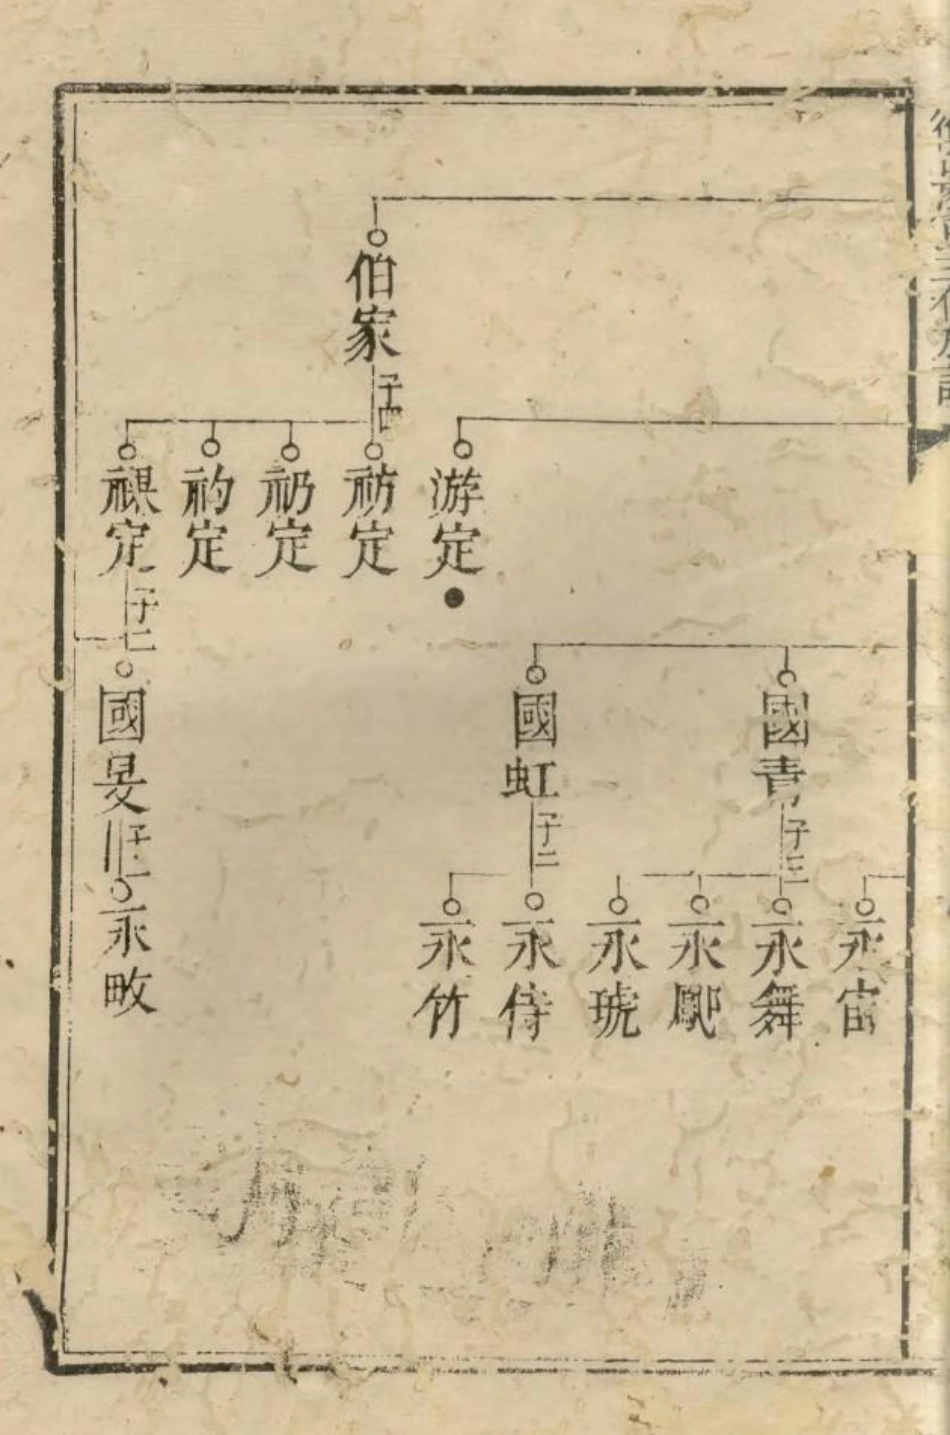 伯家
子四
游定
祊定
礽定
礿定
祺定
子二
國青
子三
國虹
子二
國旻
子一
永宙
永舞
永鄹
永琥
永侍
永竹
永畋